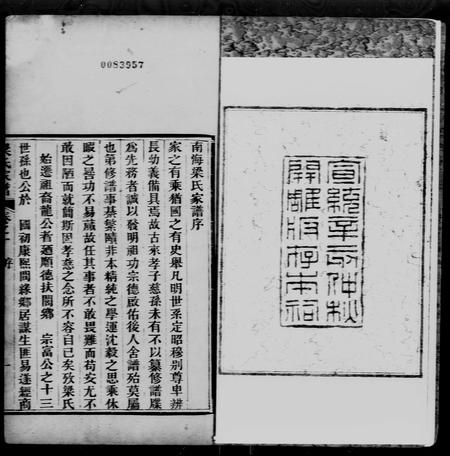 0083957
宣統辛亥仲秋
開雕版存本祠
南海梁氏家譜序
家之有乘猶國之有史舉凡明世系定昭穆別尊卑辨
長幼義備具焉故古來孝子慈孫未有不以纂修譜牒
為先務者誠以發明祖功宗德啟佑後人舍譜殆莫屬
也第修譜事綦繁賾非本精純之學運沈毅之思乘休
暇之晷功不易蕆故任其事者不敢畏難而苟安尤不
敢因陋而就簡斯固孝慈之念所不容自已矣攷梁氏
始遷祖裔龍公者廼順德扶閭鄉 宗富公之十三
世孫也公於 國初康熙間綠鄉居謀生匪易遂經商
梁氏家譜 序 一